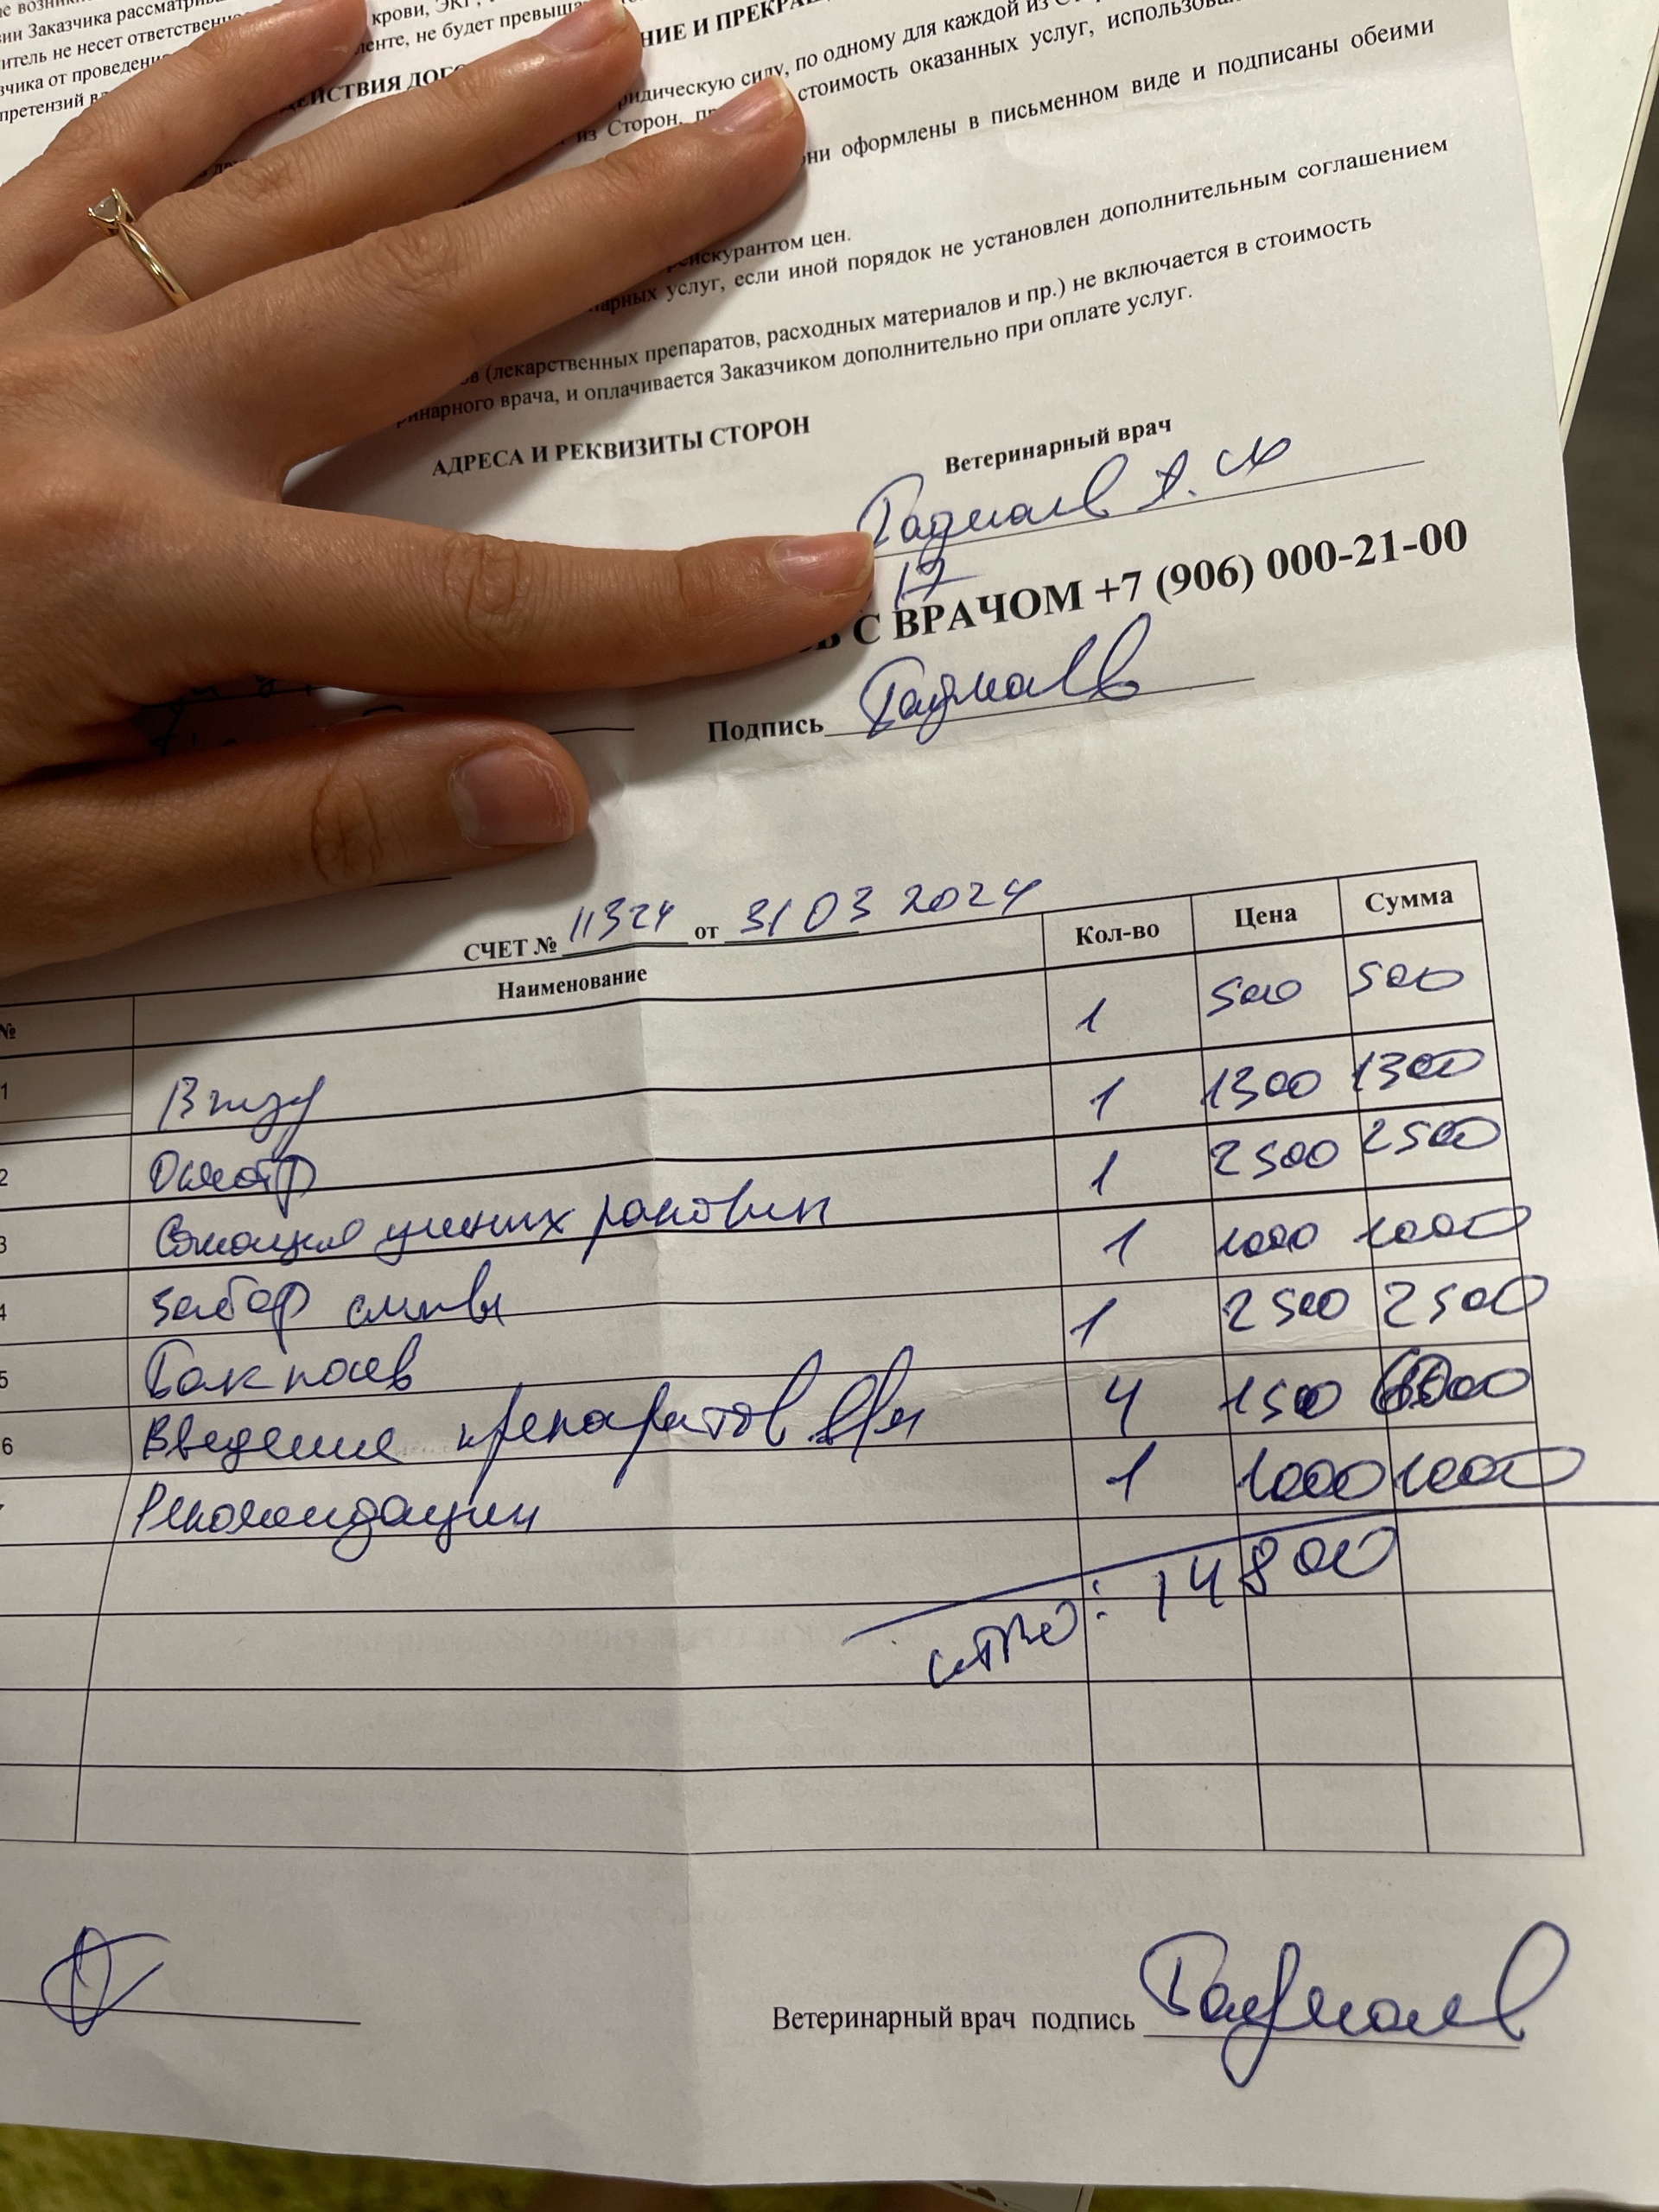 зии Заказчика рассматрив
крови, ЭКГ,
итель не несет ответственно
ленте, не будет превыша
НИЕ И ПРЕКРА
зчика от проведени
ДЕЙСТВИЯ ДОГО
ридическую силу, по одному для каждой из С
претензий в
из Сторон, пр
стоимость оказанных услуг, использова
они оформлены в письменном виде и подписаны обеими
рейскурантом цен.
нарных услуг, если иной порядок не установлен дополнительным соглашением
ов (лекарственных препаратов, расходных материалов и пр.) не включается в стоимость
ринарного врача, и оплачивается Заказчиком дополнительно при оплате услуг.
АДРЕСА И РЕКВИЗИТЫ СТОРОН
Ветеринарный врач
17
Ь С ВРАЧОМ +7 (906) 000-21-00
Подпись
СЧЕТ № 11324 от 31 03 2024
№ Наименование Кол-во Цена Сумма
1 Визу 1 500 500
2 Осмотр 1 1300 1300
3 Санация ушных раковин 1 2500 2500
4 Забор смывы 1 1000 1000
5 Бак посев 1 2500 2500
6 Введение препаратов в/м 4 1500 6000
Рекомендации 1 1000 1000
итого: 14800
Ветеринарный врач подпись